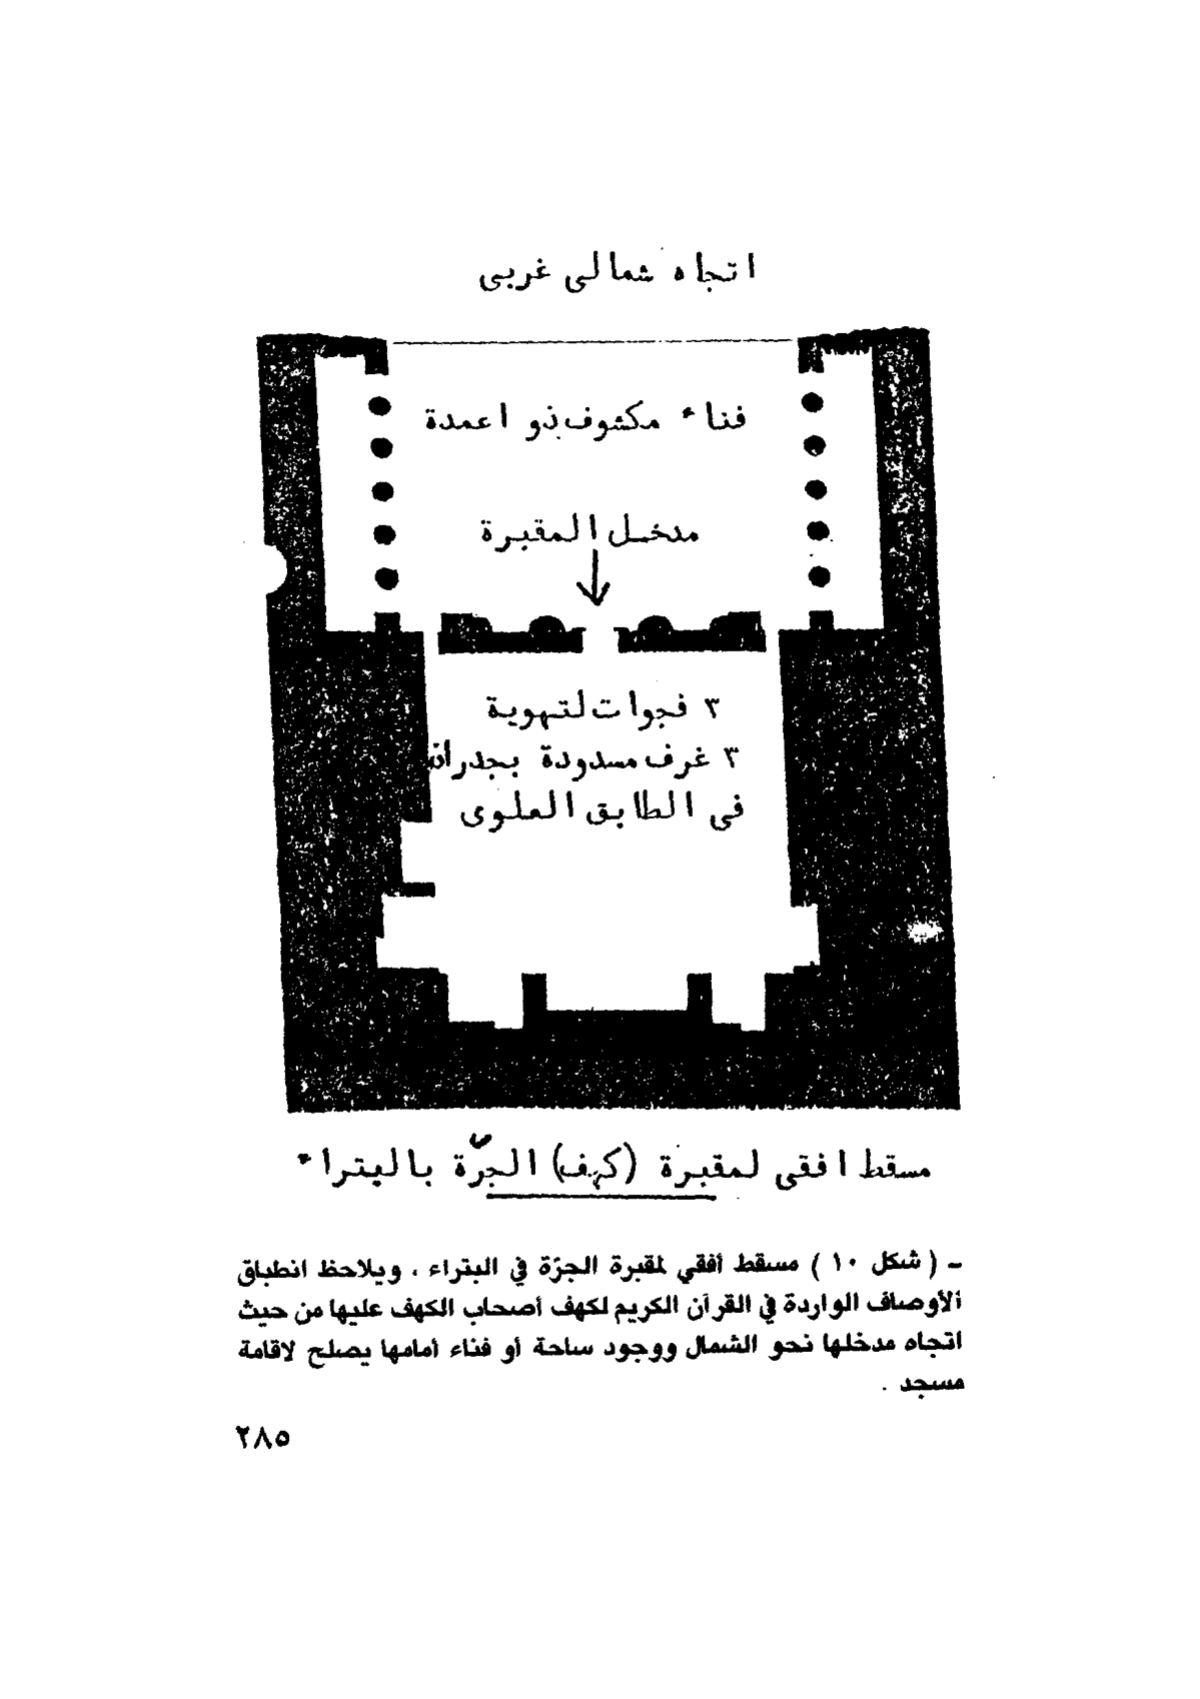 اتجاه شمالى غربى
فناء مكشوف ذو اعمدة
مدخل المقبرة
٣ فجوات لتهوية
٣ غرف مسدودة بجدران
فى الطابق العلوى
مسقط افقى لمقبرة (كهف) الجرّة بالبتراء
ـ ( شكل ١٠ ) مسقط أفقي لمقبرة الجرّة في البتراء ، ويلاحظ انطباق
الأوصاف الواردة في القرآن الكريم لكهف أصحاب الكهف عليها من حيث
اتجاه مدخلها نحو الشمال ووجود ساحة أو فناء أمامها يصلح لاقامة
مسجد .
٢٨٥